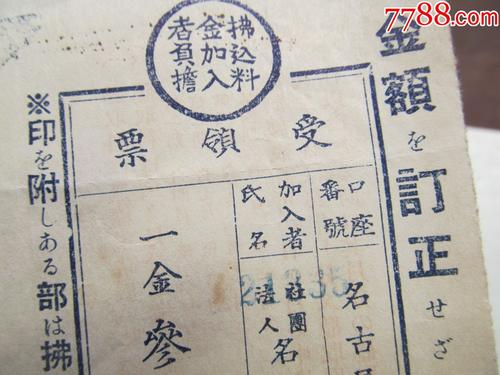 7788.com
金額を訂正せざ
拂込料
金加入
者負擔
受領票
口座番號
名古
加入者氏名
21335
社團法人名
一金參
※印を附しある部は拂